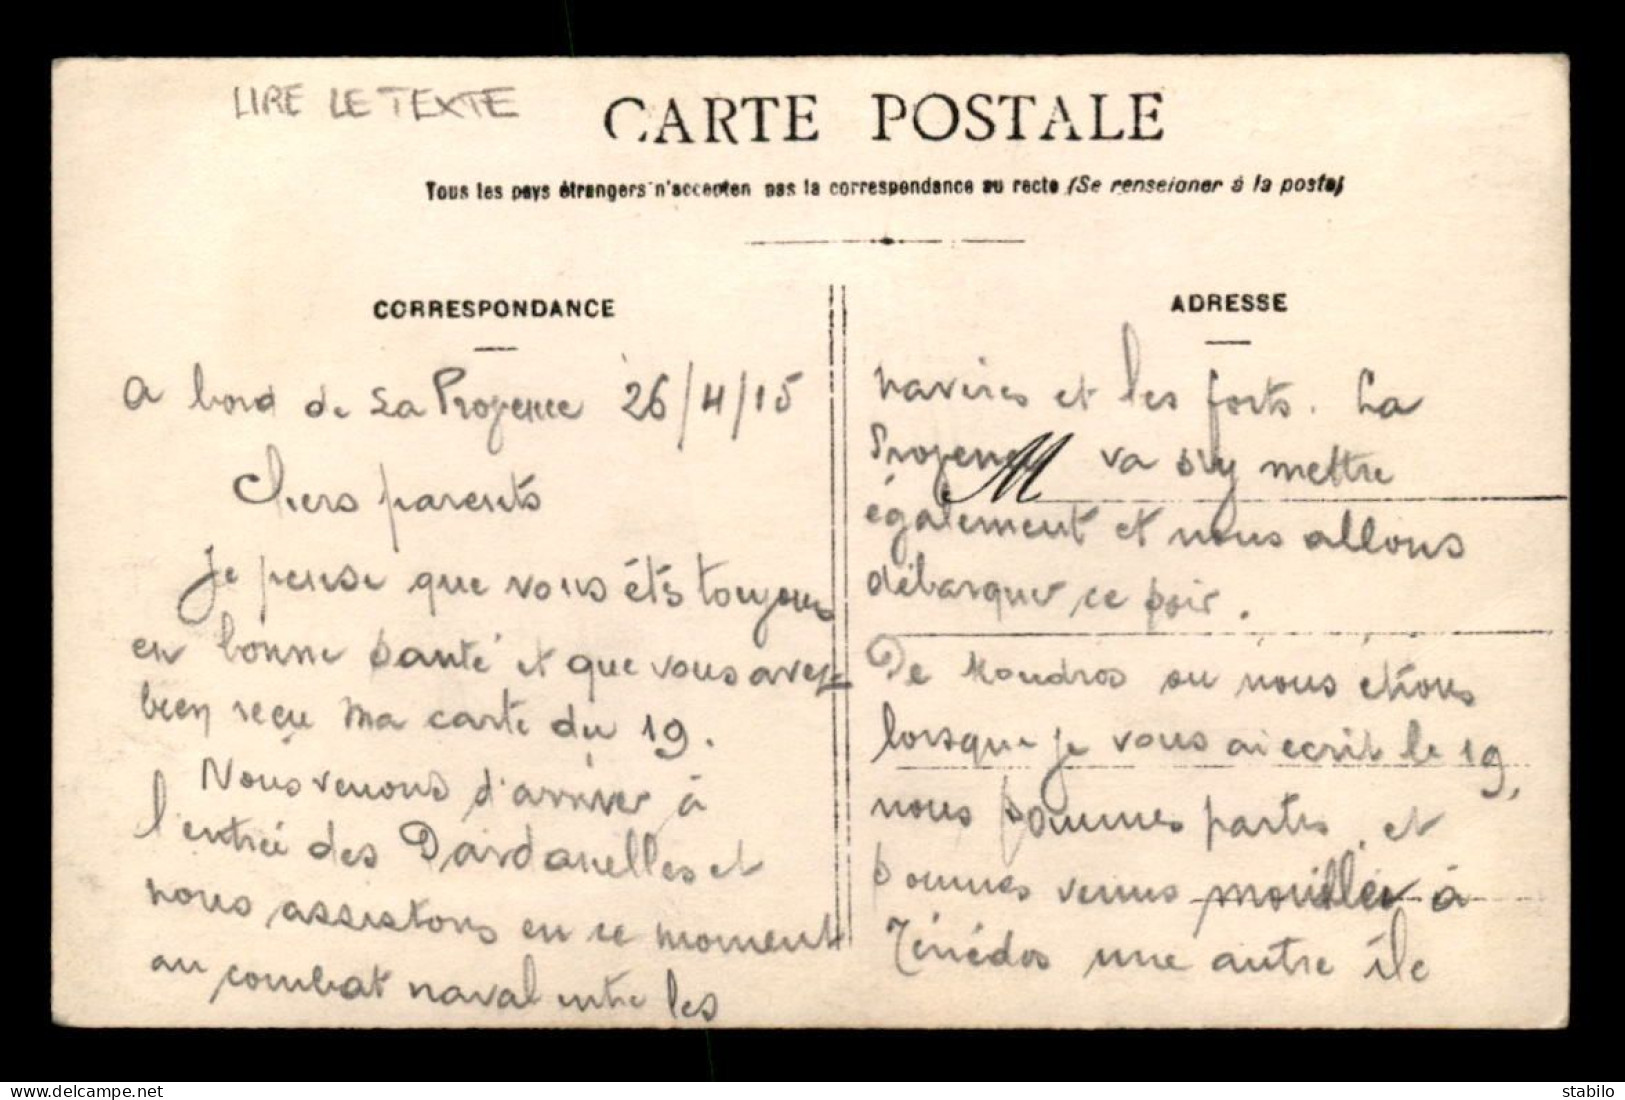 LIRE LE TEXTE
CARTE POSTALE
Tous les pays étrangers n'acceptent pas la correspondance au recto (Se renseigner à la poste)
CORRESPONDANCE
a bord de La Provence 26/4/15
Chers parents
Je pense que vous étés toujours
en bonne santé et que vous avez
bien reçu ma carte du 19.
Nous venons d'arriver à
l'entrée des Dardanelles et
nous assistons en ce moment
au combat naval entre les
ADRESSE
navires et les forts. La
Provence va s'y mettre
M
également et nous allons
débarquer ce soir.
De Moudros ou nous étions
lorsque je vous ai ecrit le 19,
nous sommes partis et
sommes venus mouiller à
Ténédos une autre île
stabilo